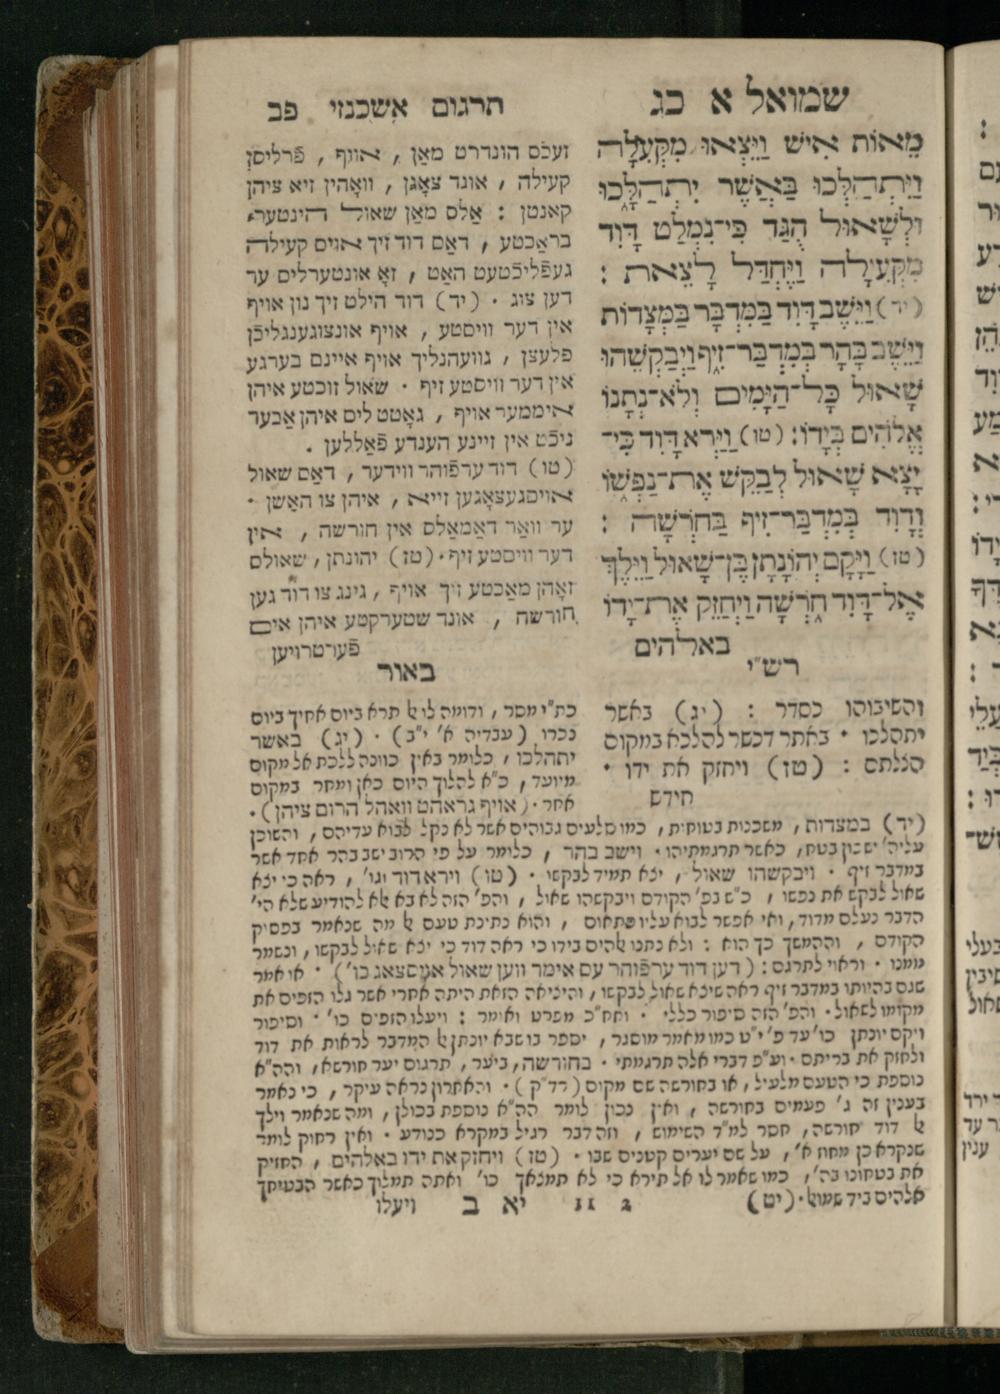 שמואל א כג
מֵאוֹת אִישׁ וַיֵּצְאוּ מִקְּעִלָה
וַיִּתְהַלְּכוּ בַּאֲשֶׁר יִתְהַלָּכוּ
וּלְשָׁאוּל הֻגַּד כִּי־נִמְלַט דָּוִד
מִקְּעִילָה וַיֶּחְדַּל לָצֵאת :
(יד) וַיֵּשֶׁב דָּוִד בַּמִּדְבָּר בַּמְּצָדוֹת
וַיֵּשֶׁב בָּהָר בְּמִדְבַּר־זִיף וַיְבַקְשֵׁהוּ
שָׁאוּל כָּל־הַיָּמִים וְלֹא־נְתָנוֹ
אֱלֹהִים בְּיָדוֹ: (טו) וַיַּרְא דָוִד כִּי־
יָצָא שָׁאוּל לְבַקֵּשׁ אֶת־נַפְשׁוֹ
וְדָוִד בְּמִדְבַּר־זִיף בַּחֹרְשָׁה :
(טז) וַיָּקָם יְהוֹנָתָן בֶּן־שָׁאוּל וַיֵּלֶךְ
אֶל־דָּוִד חֹרְשָׁה וַיְחַזֵּק אֶת־יָדוֹ
באלהים
תרגום אשכנזי פב
זעכס הונדרט מאַן , אויף , פֿרליסן
קעילה , אונד צאָגן , וואָהין זיא ציהן
קאנטן : אַלס מאַן שאול הינטער,
בראַכטע , דאַס דוד זיך אויס קעילה
געפֿליכֿטעט האַט , זאָ אונטערליס ער
דען צוג . (יד) דוד הילט זיך נון אויף
אין דער וויסטע , אויף אונצוגענגליכֿן
פלעצן , געוועהנליך אויף איינם בערגע
אין דער וויסטע זיף . שאול זוכטע איהן
איממער אויף , גאָטט ליס איהן אַבער
ניכֿט אין זיינע הענדע פֿאַללען .
(טו) דוד ערפֿוהר ווידער , דאַס שאול
אויסגעצאָגען זייא , איהן צו האַשן .
ער וואַר דאַמאַלס אין חורשה , אין
דער וויסטע זיף . (טז) יהונתן , שאולס
זאָהן מאַכטע זיך אויף , גינג צו דוד גען
חורשה , אונד שטערקטע איהן אים
פֿערטרויען
רש״י
והשיבוהו כסדר : (יג) באשר
יתהלכו . באתר דכשר להלכא במקום
הגלתם : (טז) ויחזק את ידו .
חידש
באור
כת״י מסר , ודומה לו אל תרא ביום אחיך ביום
נכרו (עבדיה א' י״ב) . (יג) באשר
יתהלכו , כלומר באין כוונה ללכת אל מקום
מיועד , כ״א להלוך היום כאן ומחר במקום
אחר . (אויף גראהט וואהל הרום ציהן) .
(יד) במצדות , משכנות בטוחות , כמו סלעים גבוהים אשר לא נקל לבוא עדיהם , והשוכן
עליה' ישכון בטח, כאשר תרגמתיהו . וישב בהר , כלומר על פי הרוב ישב בהר אחד אשר
במדבר זיף . ויבקשהו שאול , יצא תמיד לבקשו . (טו) וירא דוד וגו' , ראה כי יצא
שאול לבקש את נפשו , כ״ש בפ' הקודם ויבקשהו שאול , והפ' הזה לא בא אלא להודיע שלא הי'
הדבר נעלם מדוד, ואי אפשר לבוא עליו פתאום , והוא נתינת טעם אל מה שנאמר בפסיק
הקודם , וההמשך כך הוא : ולא נתנו אלהים בידו כי ראה דוד כי יצא שאול לבקשו, ונשמר
ממנו . וראוי לתרגם : (דען דוד ערפֿוהר עס אימר ווען שאול אויסצאג כו') . או אמר
שגם בהיותו במדבר זיף ראה שיצא שאול לבקשו, והיציאה הזאת היתה אחרי אשר גלו הזפים את
מקומו לשאול . והפ' הזה סיפור כללי . ואח״כ מפרט ואומר : ויעלו הזפים כו' . וסיפור
ויקם יונתן כו' עד פ' י״ט כמו מאמר מוסגר , יספר בו שבא יונתן אל המדבר לראות את דוד
ולחזק את בריתם . וע״פ דברי אלה תרגמתי . בחורשה, ביער, תרגום יער חורשא, והה״א
נוספת כי הטעם מלעיל , או בחורשה שם מקום (רד״ק) . והאחרון נראה עיקר , כי נאמר
בענין זה ג' פעמים בחורשה , ואין נכון לומר הה״א נוספת בכולן, ומה שנאמר וילך
אל דוד חורשה, חסר למ״ד השימוש , וזה דבר רגיל במקרא כנודע . ואין רחוק לומר
שנקרא כן מחוז א' , על שם יערים קטנים שבו . (טז) ויחזק את ידו באלהים , החזיק
את בטחונו בה' , כמו שאמר לו אל תירא כי לא תמצאך כו' ואתה תמלוך כאשר הבטיחך
אלהים ביד שמואל . (יט)
2 II יא ב ויעלו